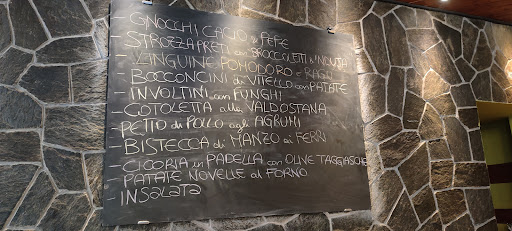 - GNOCCHI CACIO e PEPE
- STROZZAPRETI con BROCCOLETTI e 'NDUJA
- LINGUINE POMODORO e RAGÙ
- BOCCONCINI di VITELLO con PATATE
- INVOLTINI con FUNGHI
- COTOLETTA alla VALDOSTANA
- PETTO di POLLO agli AGRUMI
- BISTECCA di MANZO ai FERRI
- CICORIA in PADELLA con OLIVE TAGGIASCHE
- PATATE NOVELLE al FORNO
- INSALATA